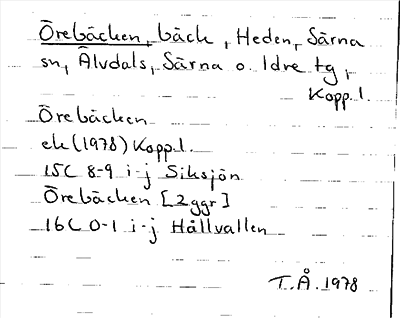 Örebäcken, bäck, Heden, Särna
sn, Älvdals, Särna o. Idre tg,
Kopp.l.
Örebäcken
ek (1978) Kopp.l.
15C 8-9 i-j Siksjön
Örebäcken [2 ggr]
16C 0-1 i-j Hållvallen
T.Å. 1978